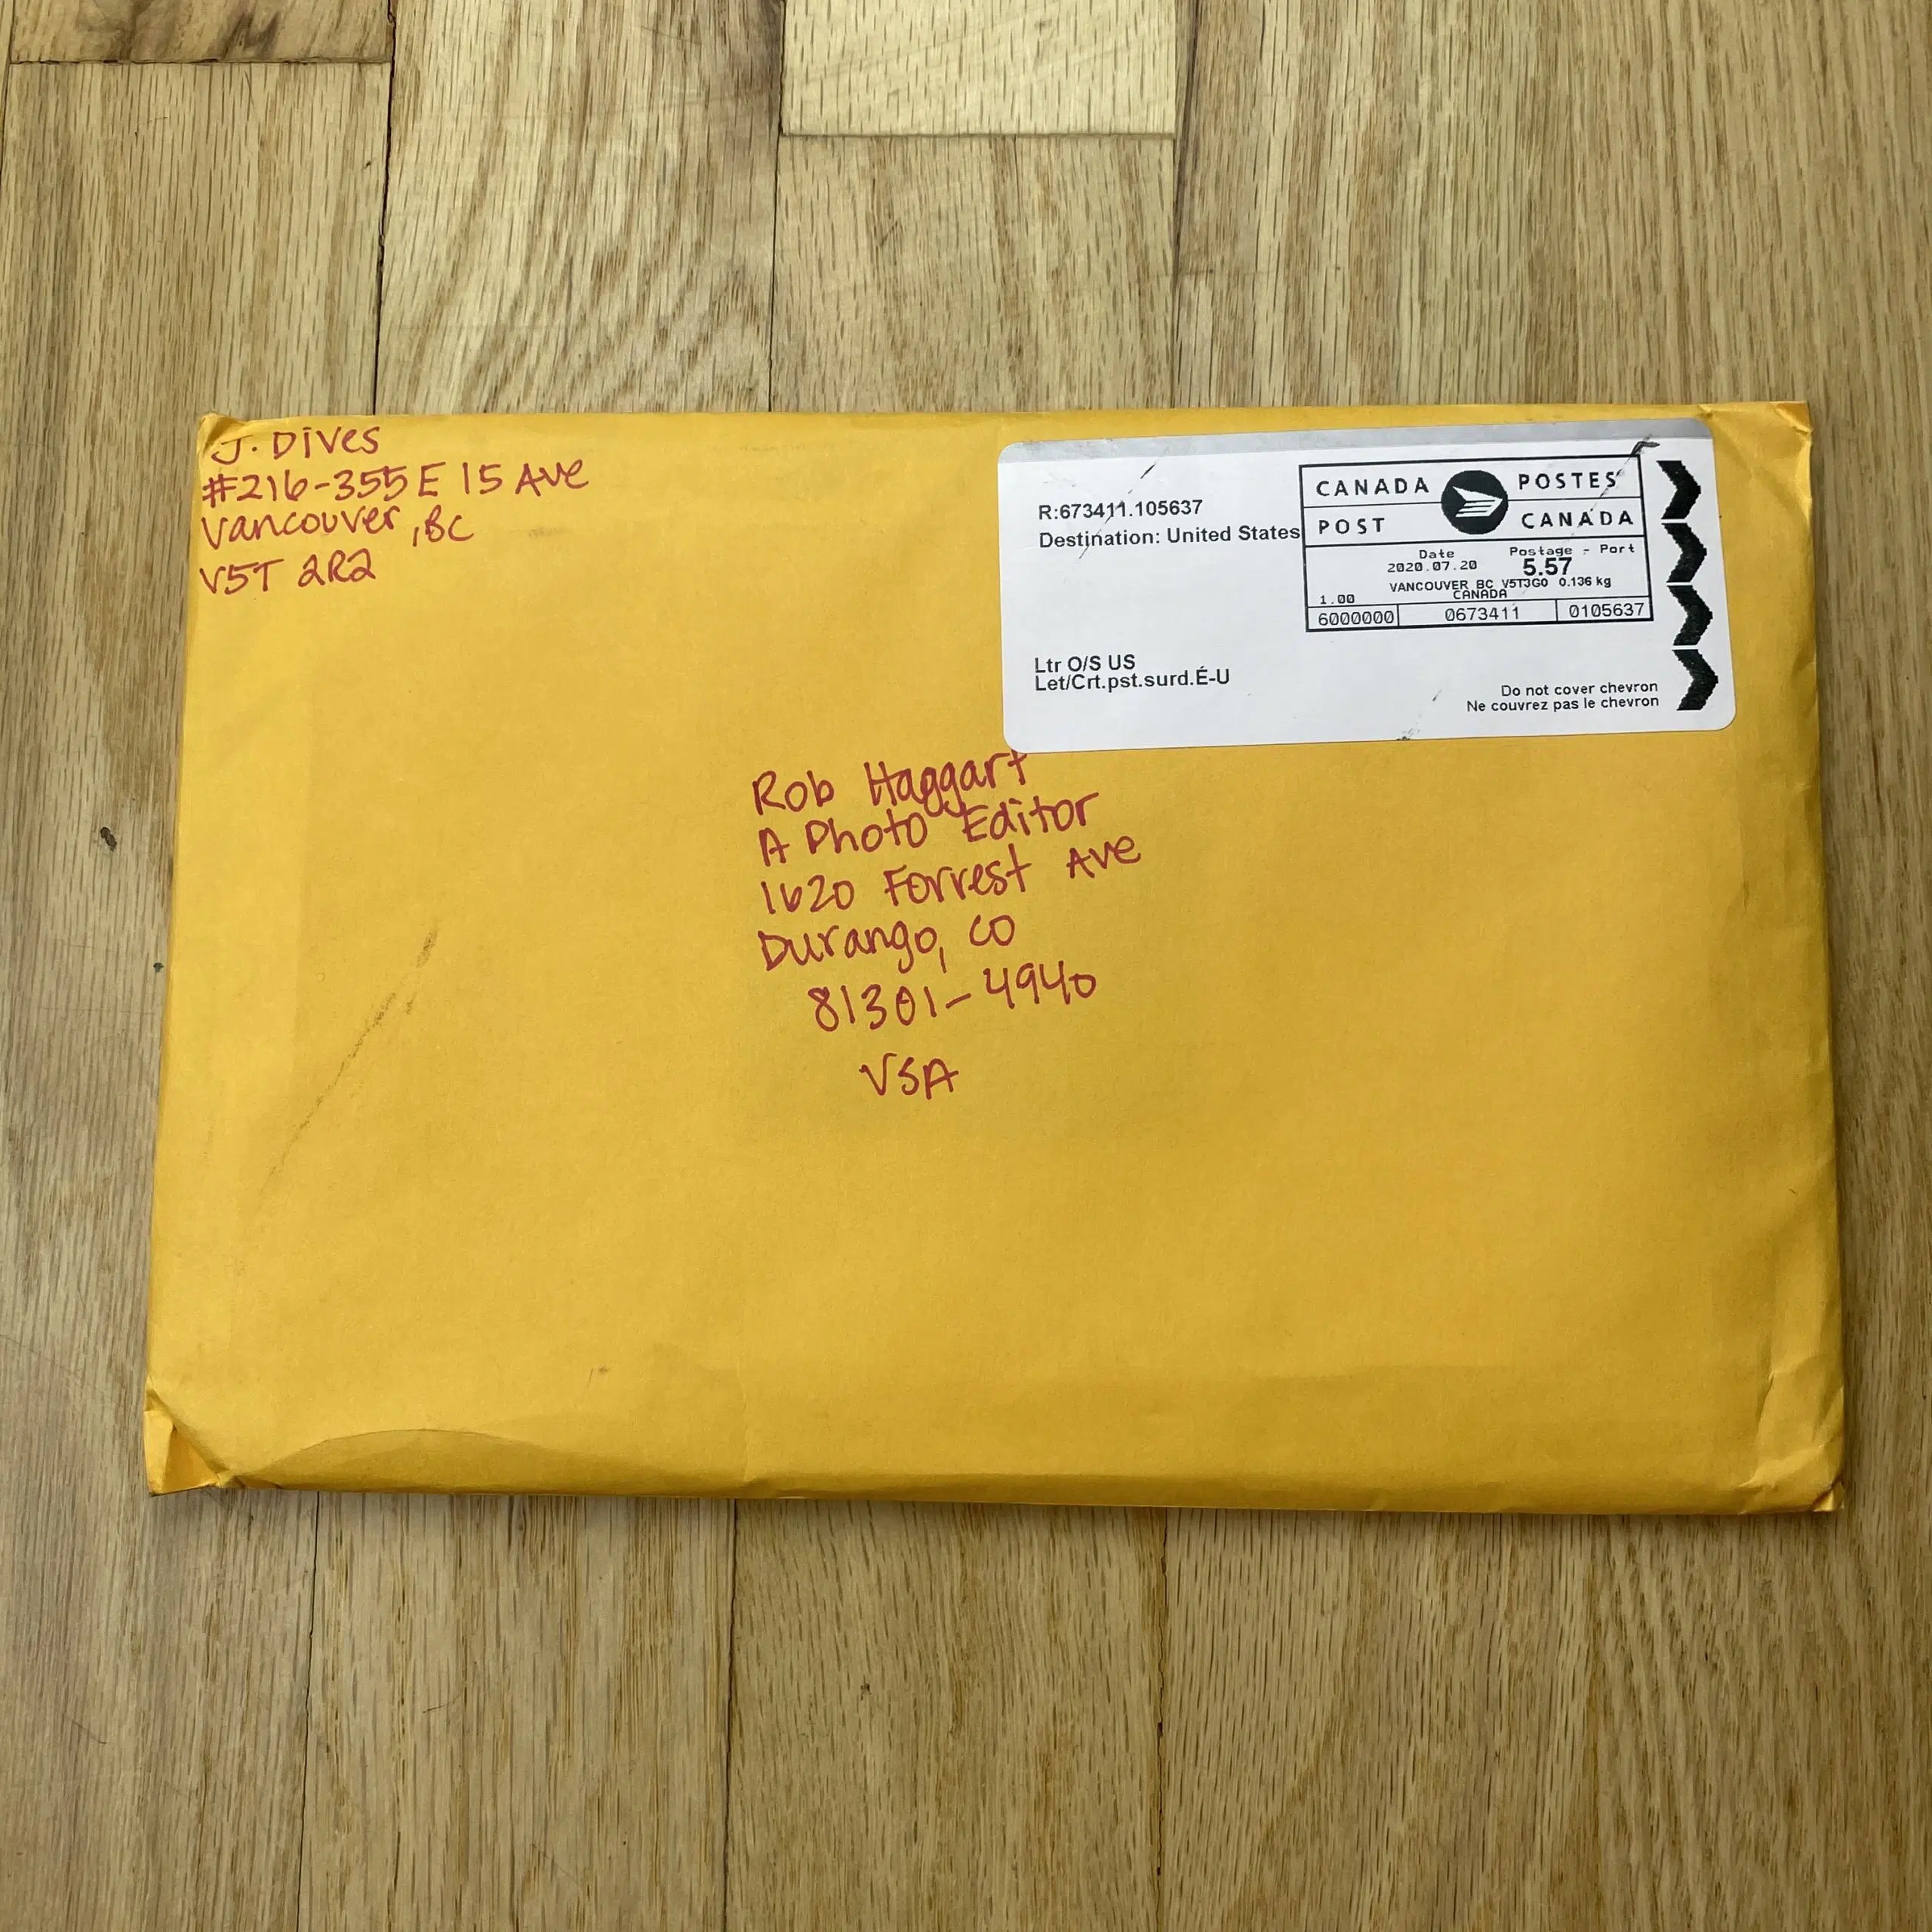 J. Dives
#216-355 E 15 Ave
Vancouver, BC
V5T 2R2
R:673411.105637
Destination: United States
CANADA POSTES
POST CANADA
Date Postage - Port
2020.07.20 5.57
VANCOUVER BC V5T3G0 0.136 kg
1.00 CANADA
6000000 0673411 0105637
Ltr O/S US
Let/Crt.pst.surd.É-U
Do not cover chevron
Ne couvrez pas le chevron
Rob Haggart
A Photo Editor
1620 Forrest Ave
Durango, CO
81301-4940
USA